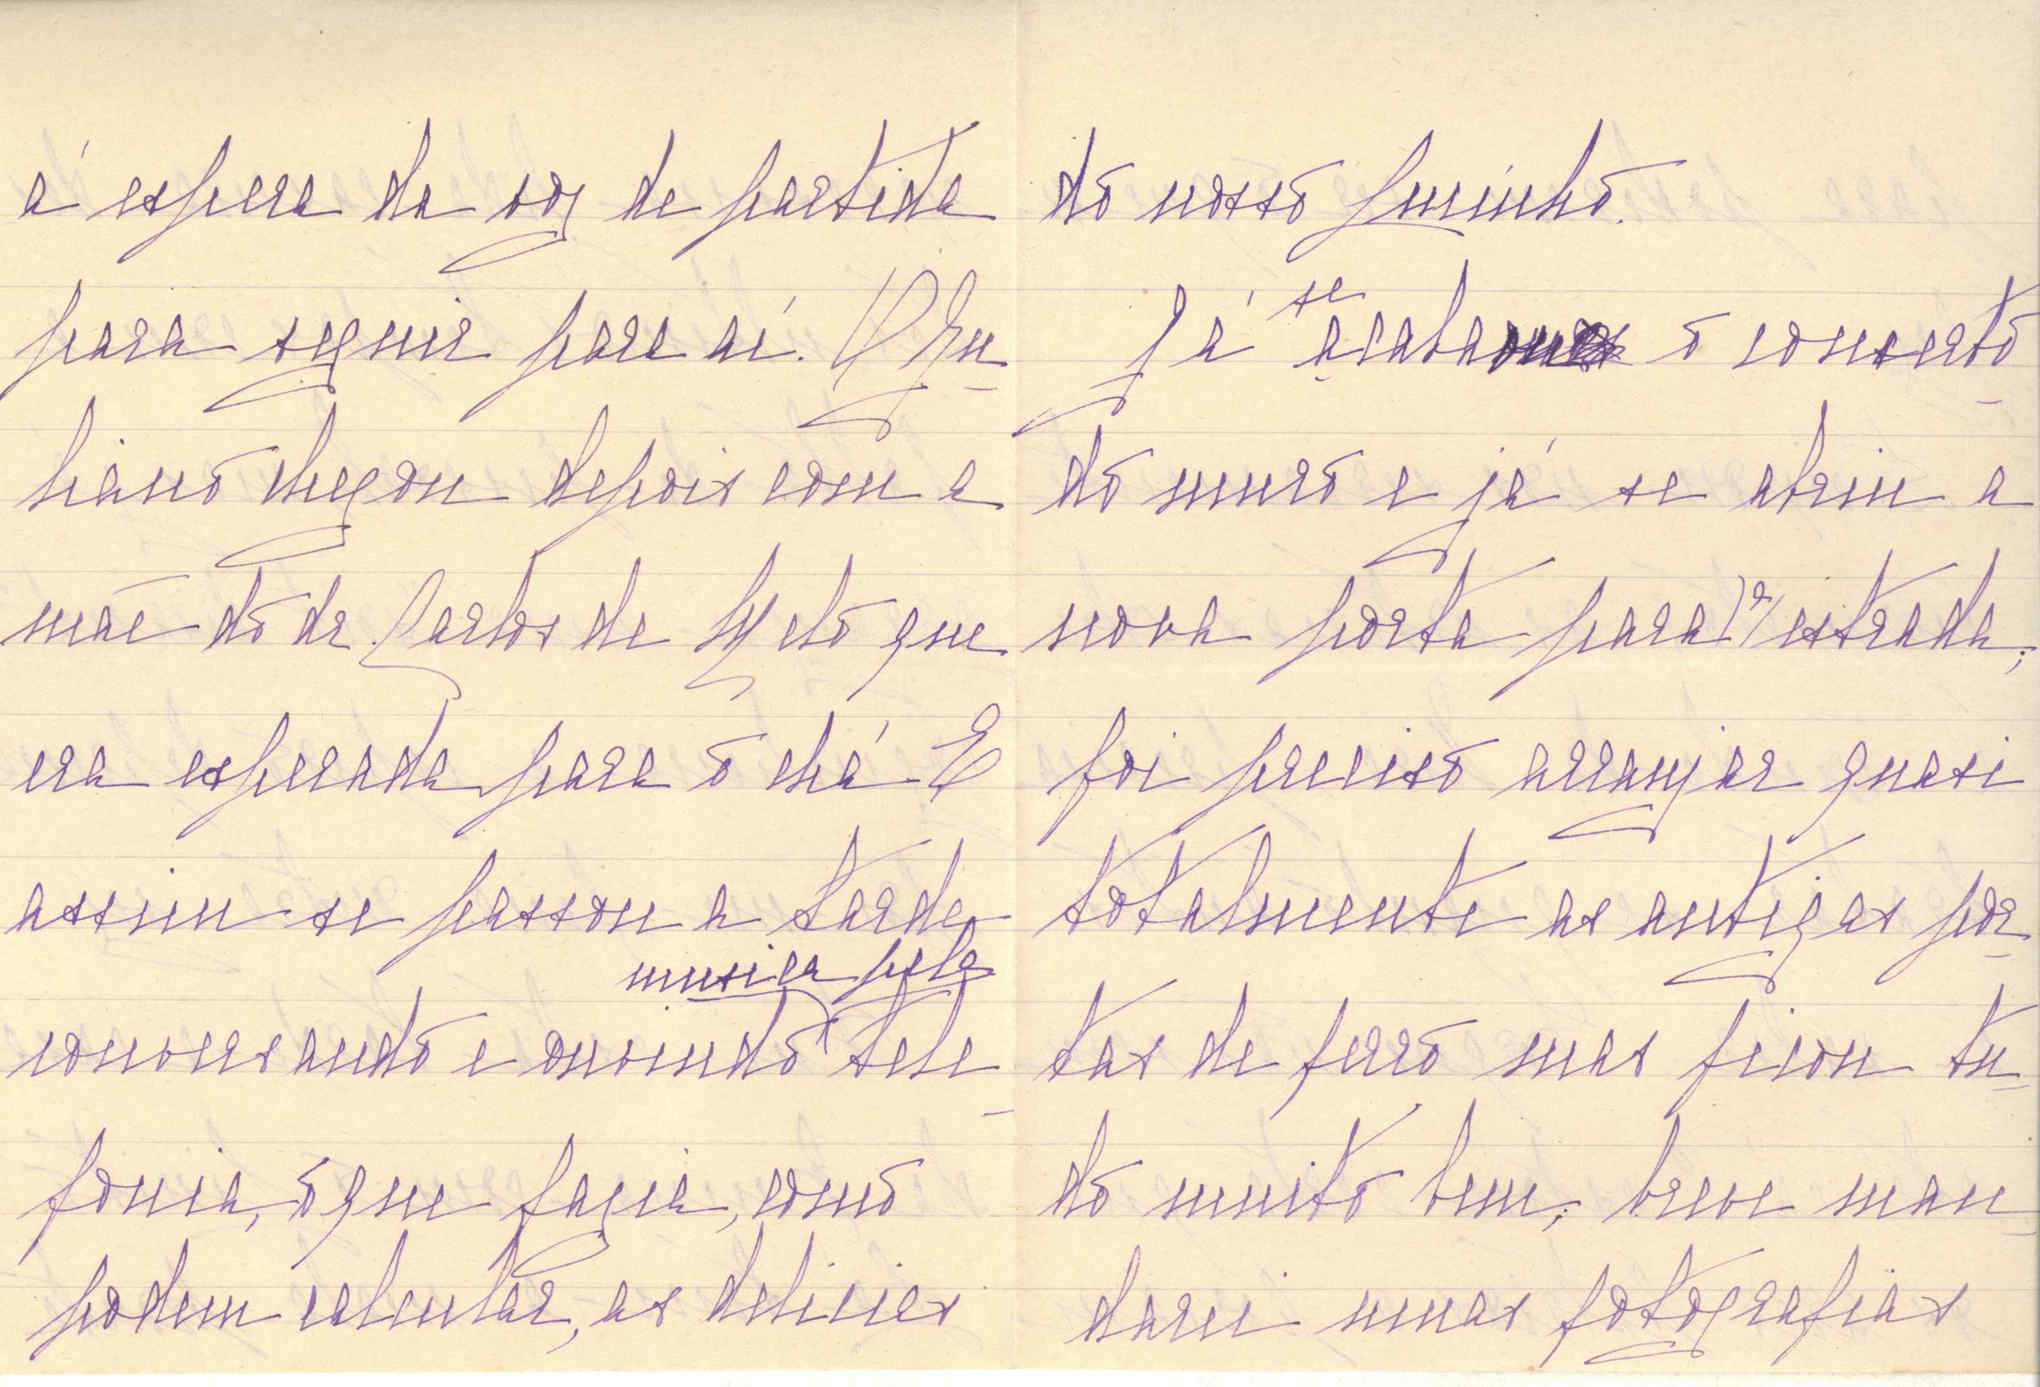 á espera da voz de partida
para seguir para aí. O Zu-
hiano chegou depois com a
mãe do dr. Carlos de Melo que
era esperada para o chá. E
assim se passou a tarde
conversando e ouvindo musica pela tele-
fonia, o que fazia, como
podem calcular, as delicias
do nosso
Já se acabou o concerto
do muro e já se abriu a
nova porta para a estrada;
foi preciso arranjar quasi
totalmente as antigas por-
tas de ferro mas ficou tu-
do muito bem; breve man-
darei umas fotografias